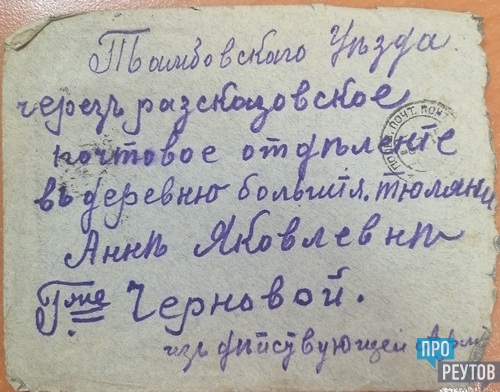 Тамбовскаго Уѣзда.
черезъ разсказовское
почтовое отдѣленіе
въ деревню большія тюляни
Аннѣ Яковлевнѣ
Г.же Черновой.
изъ дѣйствующей
ПОЧТ. КОН
ПРО
РЕУТОВ